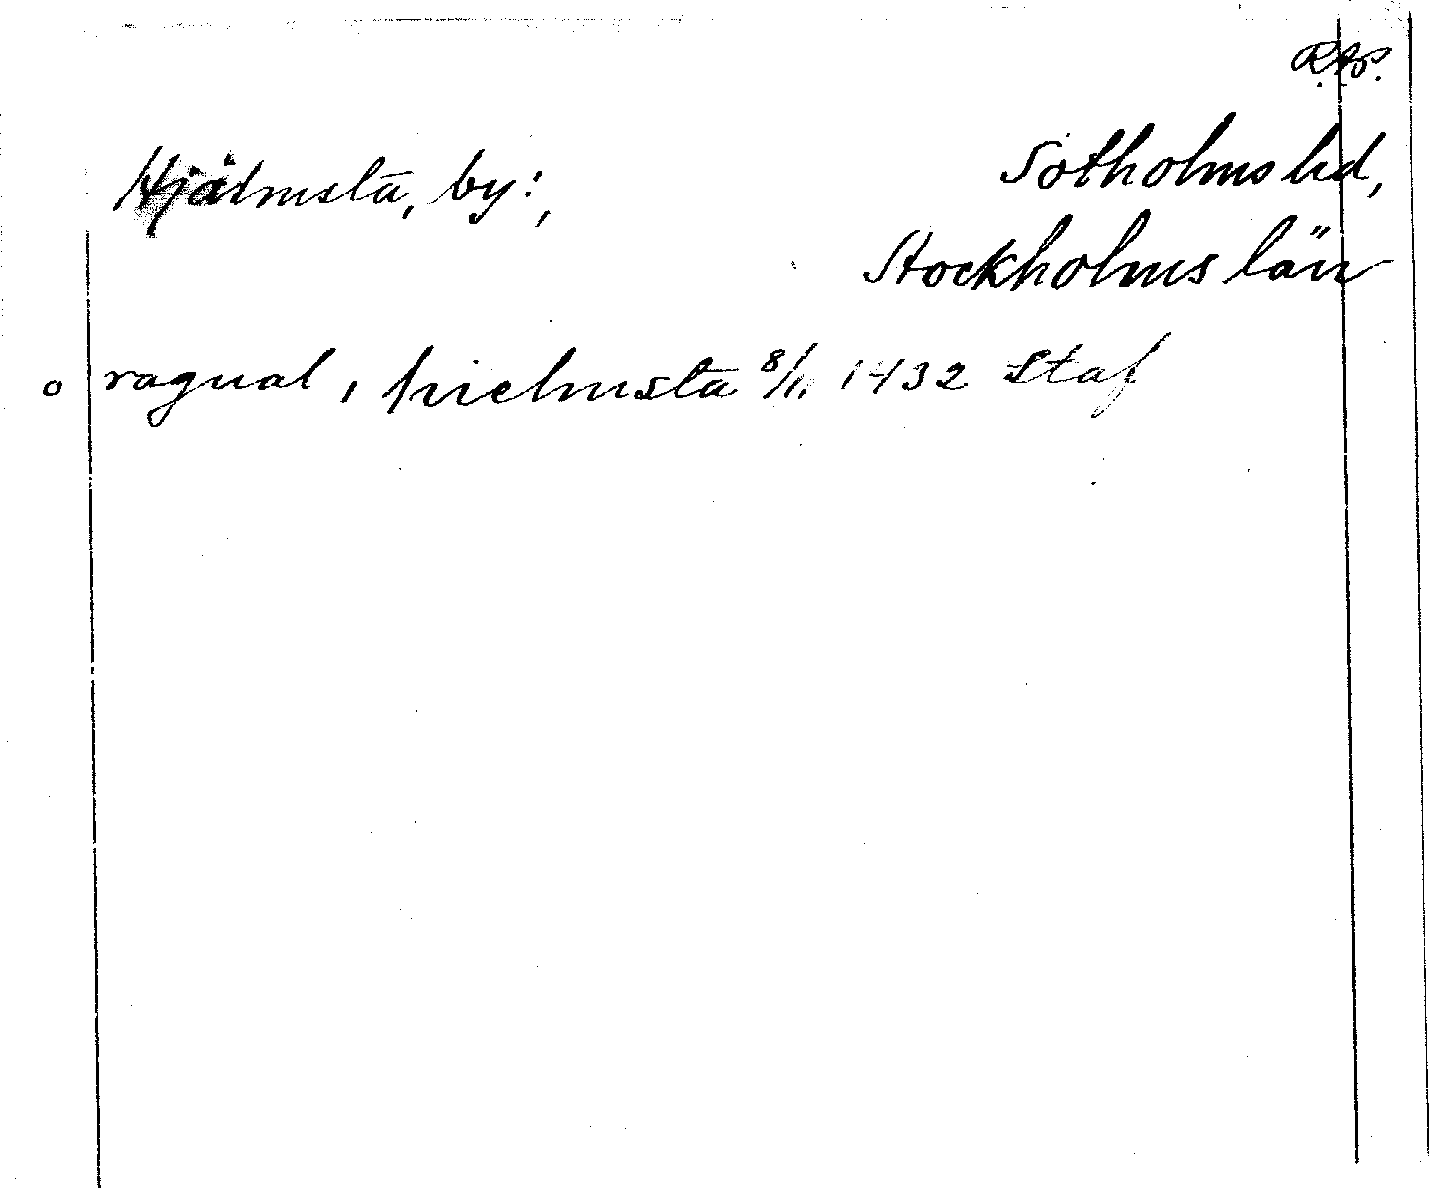 R.A.P.
Hjälmsta, by:, Sotholms hd,
Stockholms län
o ragual, i hielmsta 8/11 1432 Staf